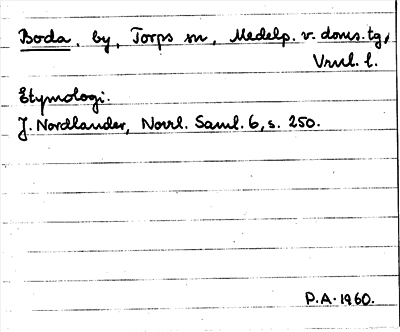 Boda, by, Torps sn, Medelp. v. doms.tg,
Vrnl. l.
Etymologi.
J. Nordlander, Norrl. Saml. 6, s. 250.
P.A. 1960.